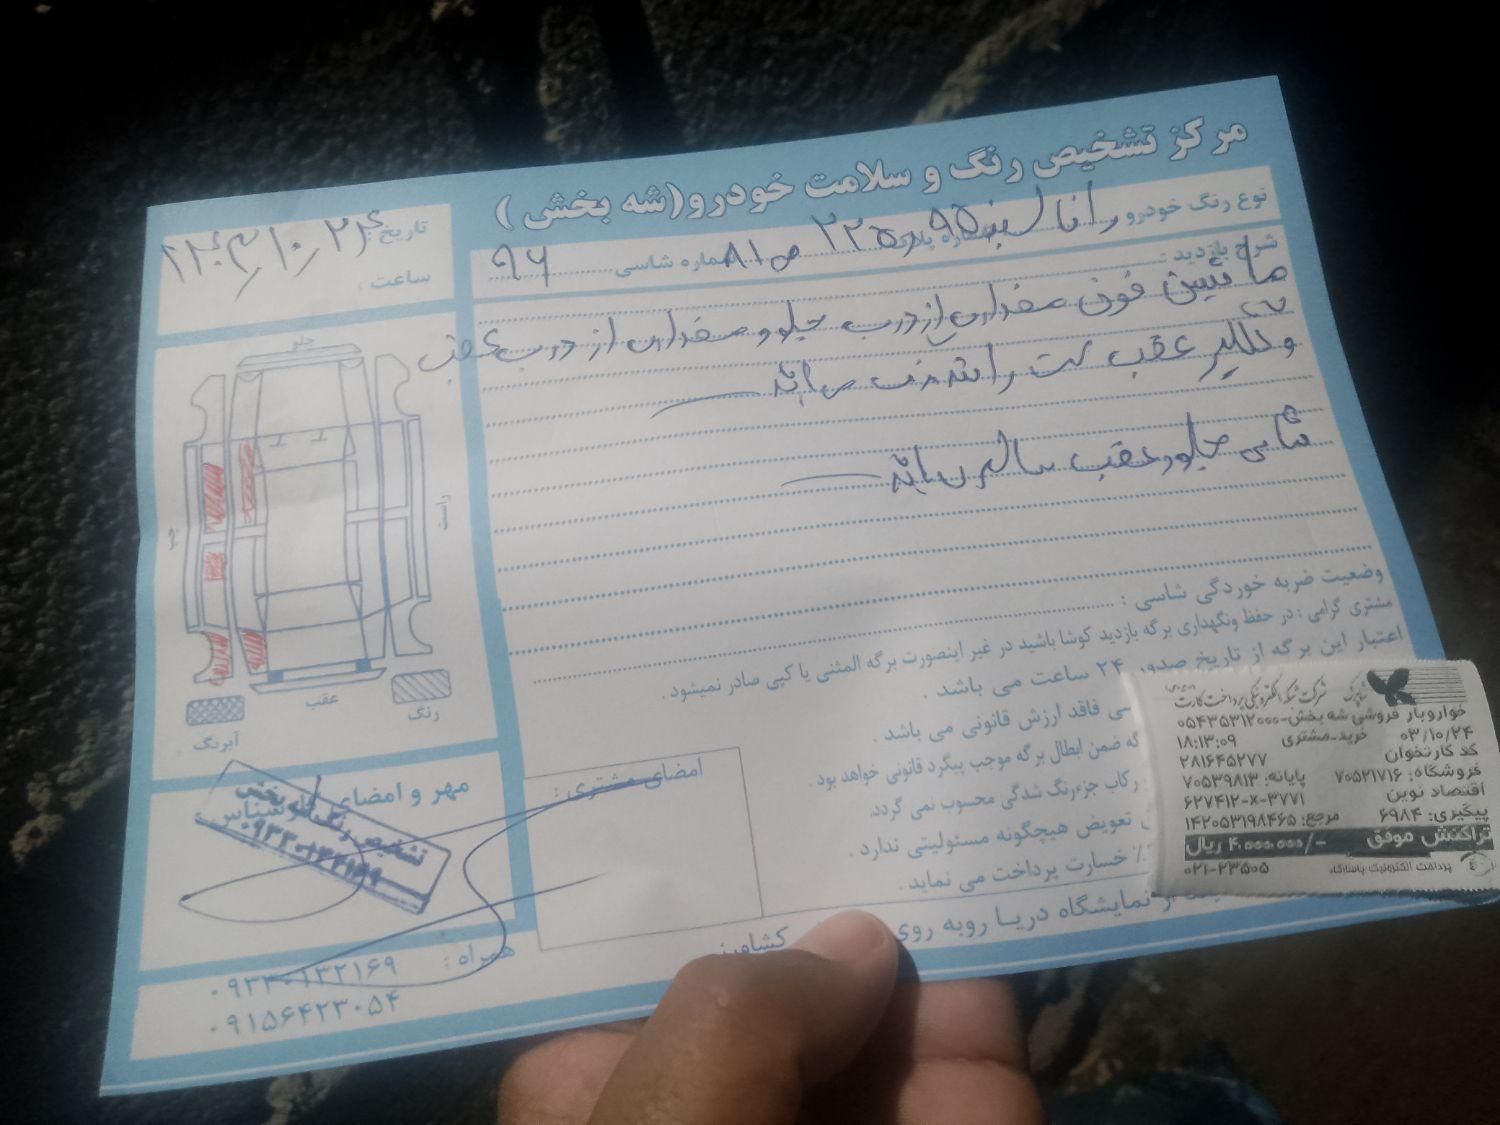 مرکز تشخیص رنگ و سلامت خودرو(شه بخش )
تاریخ : ۱۴۰۳/۱۰/۲۴
ساعت :
نوع رنگ خودرو رانا سفید شماره پلاک ۹۵ ۲۲ ص ۸۱ شماره شاسی ۹۶
شرح بازدید :
ماشین فوق مقداری از درب جلو و مقداری از درب عقب
و گلگیر عقب سمت را می باشد
شاسی جلو و عقب سالم می باشد
جلو
راست
چپ
عقب
رنگ
آبرنگ
وضعیت ضربه خوردگی شاسی :
مشتری گرامی : در حفظ ونگهداری برگه بازدید کوشا باشید در غیر اینصورت برگه المثنی یا کپی صادر نمیشود .
اعتبار این برگه از تاریخ صدور ۲۴ ساعت می باشد .
فاقد ارزش قانونی می باشد .
که ضمن ابطال برگه موجب پیگرد قانونی خواهد بود .
رکاب جزء رنگ شدگی محسوب نمی گردد.
تعویض هیچگونه مسئولیتی ندارد .
خسارت پرداخت می نماید .
از نمایشگاه دریا روبه روی
مهر و امضای کارشناس
تشخیص رنگ شه بخش
۰۹۳۳۰۱۳۲۱۶۹
امضای مشتری :
همراه : ۰۹۳۳۰۱۳۲۱۶۹
۰۹۱۵۶۴۲۳۰۵۴
شرکت پرداخت الکترونیک
خواروبار فروشی شه بخش-۰۵۴۳۵۳۱۲۰۰۰
۰۳/۱۰/۲۴ خرید-مشتری ۱۸:۱۳:۰۹
کد کارتخوان ۲۸۱۶۴۵۲۷۷
فروشگاه: ۷۰۵۲۱۷۱۶ پایانه: ۷۰۵۳۹۸۱۳
اقتصاد نوین ۶۲۷۴۱۲-X-۳۷۷۱
پیگیری: ۶۹۸۴ مرجع: ۱۴۲۰۵۳۱۹۸۴۶۵
تراکنش موفق ۴،۰۰۰،۰۰۰/- ریال
پرداخت الکترونیک پاسارگاد ۰۲۱-۲۳۵۰۵